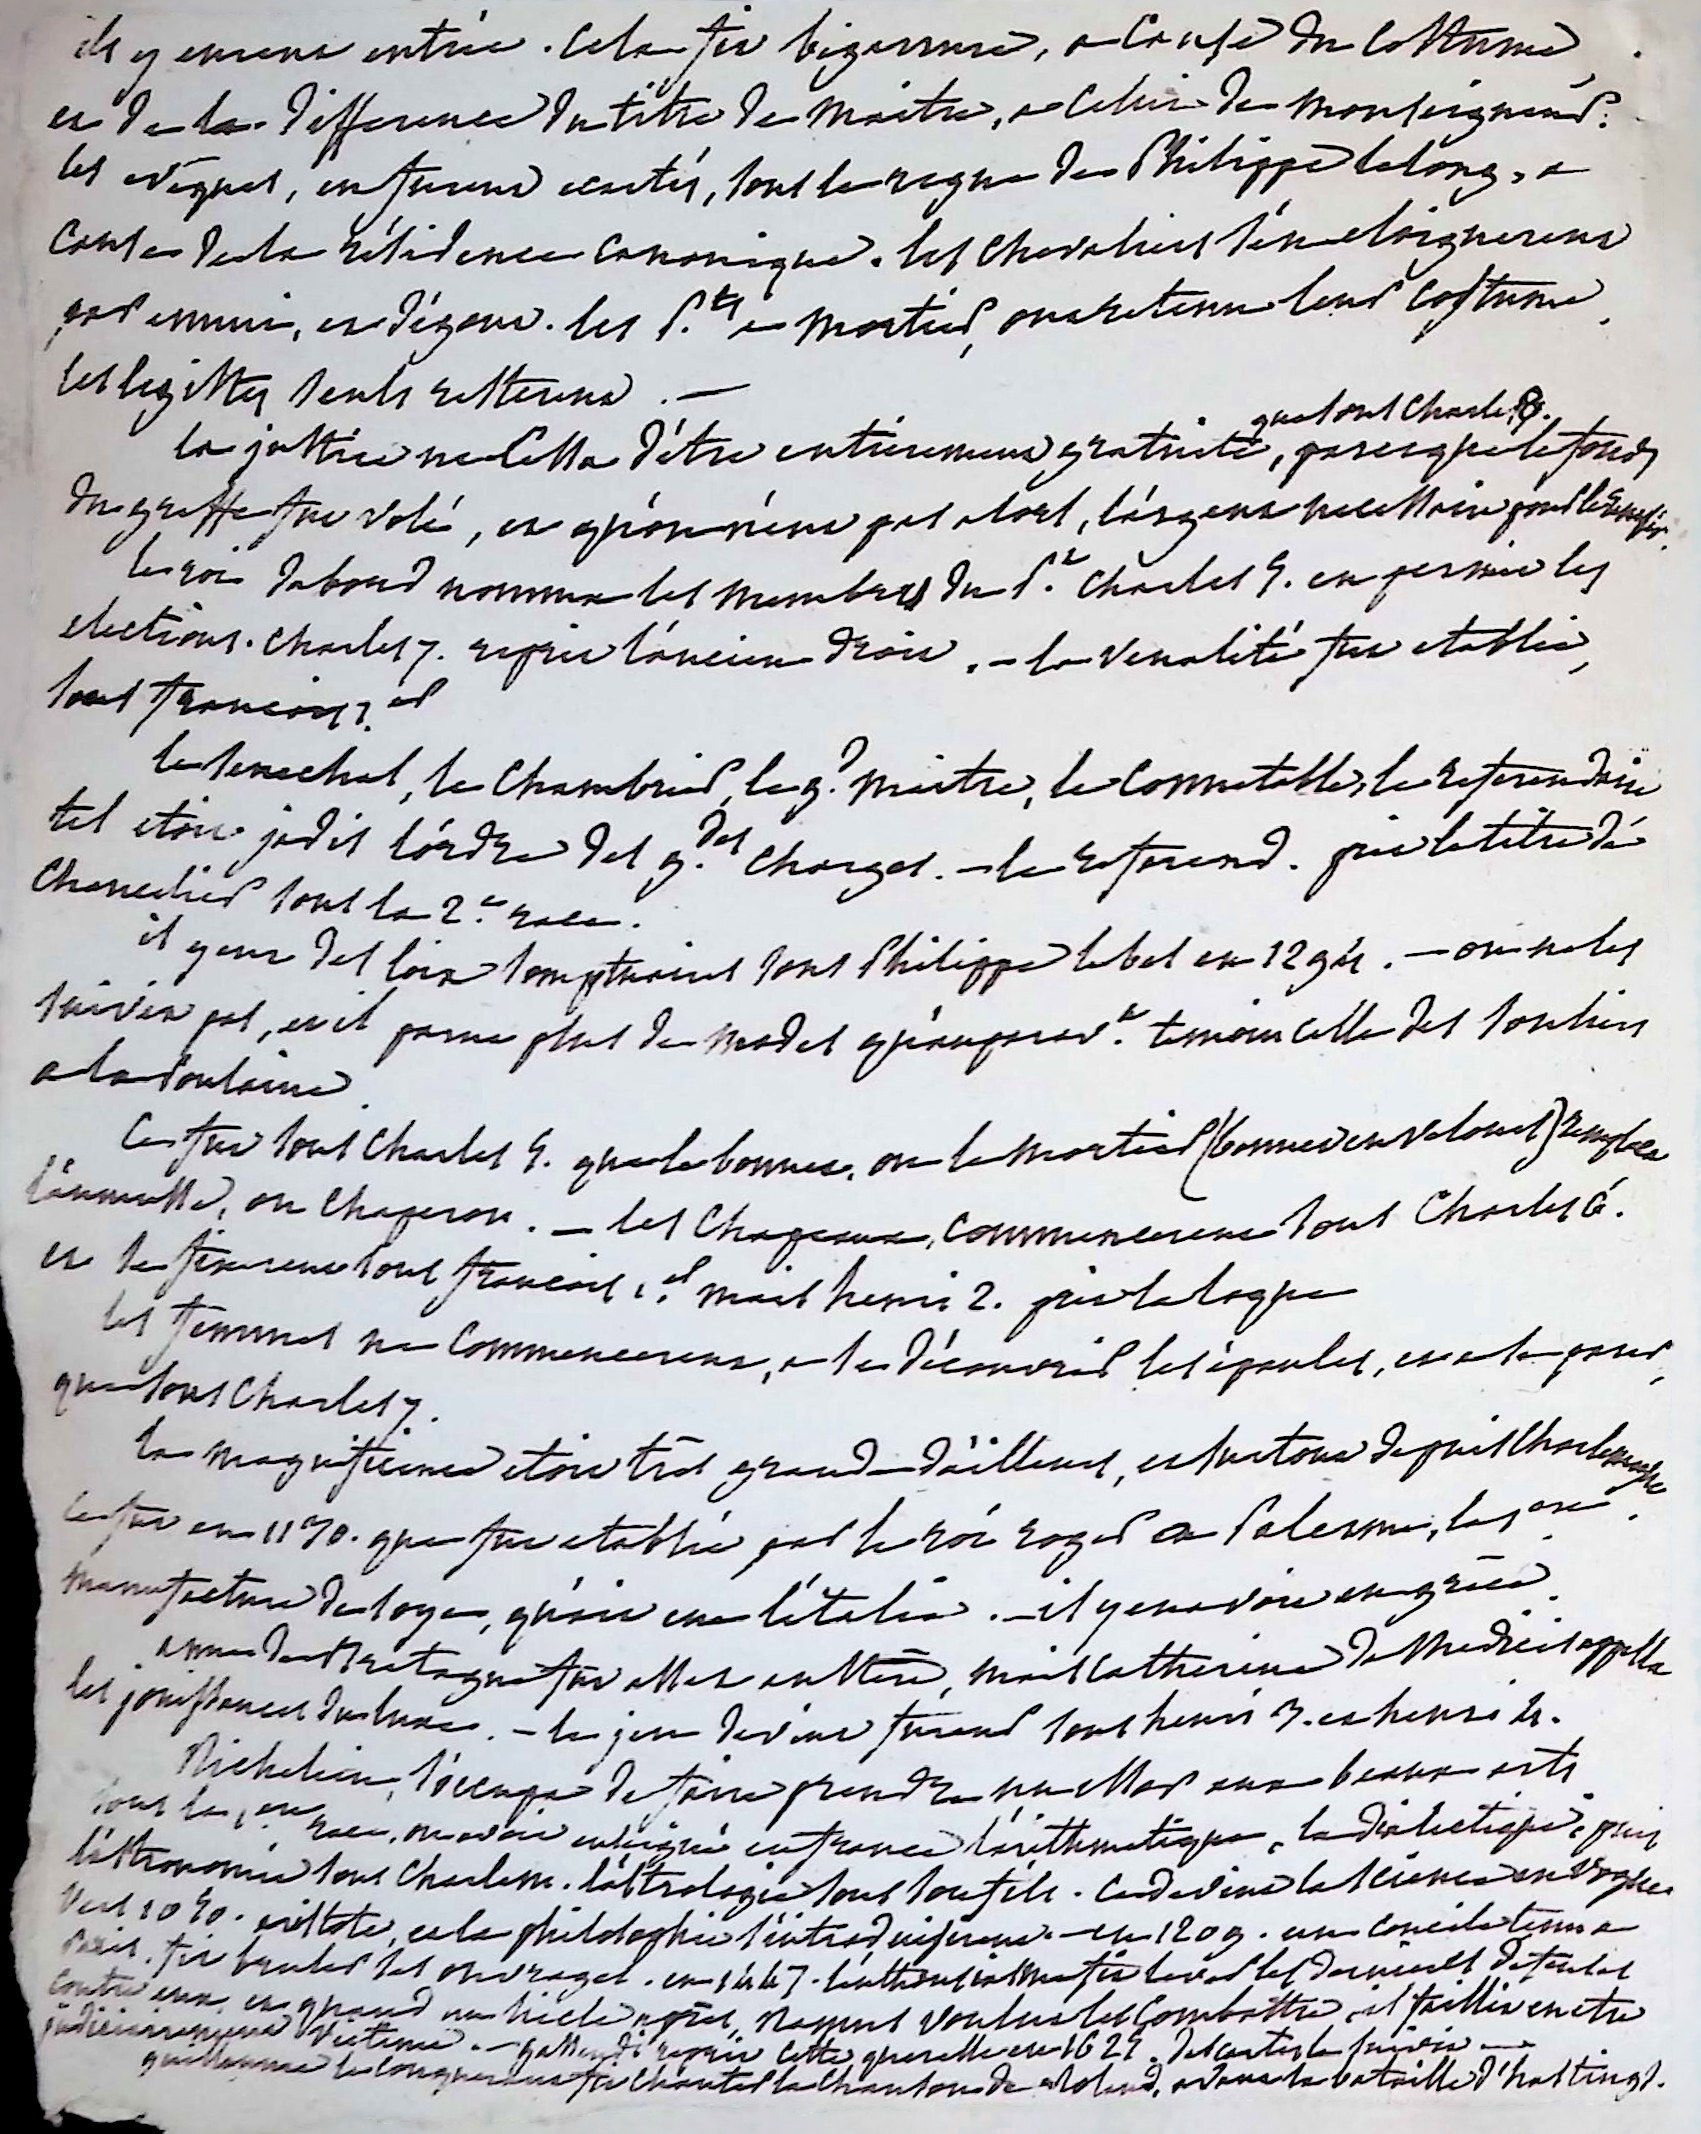 ils y eurent entrée. Cela fit bigarrure, a cause du costume,
et de la difference du titre de Maitre, a celui de Monseigneur.
les evêques, en furent ecartés, sous le regne de Philippe le long, a
cause de la résidence canonique. les chevaliers s'en eloignerent
par ennui, et dégout. les p.ts a mortier, ont retenu leur costume.
les legistes seuls resterent. —
que sous Charles 8.
la justice ne cessa d'être entierement gratuite, parce que le fonds
du greffe fut volé, et qu'on n'eut pas alors, l'argent necessaire pour le remplir.
le roi dabord nomma les membres du p.t Charles 5. en permit les
elections. Charles 7. reprit l'ancien droit. — la venalité fut etablie,
sous françois 1.er
le senechal, le chambrier, le g.d maitre, le connetable, le referendaire
tel etoit jadis l'ordre des g.des charges. — le referend. prit le titre de
chancelier sous la 2.e race.
il y eut des loix somptuaires sous Philippe le bel en 1294. — on ne les
suivit pas, et il parut plus de modes qu'auparav.t temoin celle des souliers
a la poulaine.
Ce fut sous Charles 5. que le bonnet, ou le mortier (bonnet en velours) remplaca
l'aumusse, ou chaperon. — les chapeaux, commencerent sous Charles 6.
et se fixerent sous françois 1.er mais henri 2. prit la toque
les femmes ne commencerent, a se découvrir les épaules, et a se parer,
que sous Charles 7.
la magnificence etoit très grande d'ailleurs, et surtout depuis Charlemagne
ce fut en 1130. que fut etablie par le roi roger a Palerme, la 1.ere
manufacture de soye, qu'ait eue l'italie. — il y en avoit en grèce.
anne de Bretagne fut assez austère, mais Catherine de Medicis appella
les jouissances du luxe. — le jeu devint fureur sous henri 3. et henri 4.
Richelieu, s'occupa de faire prendre un essor aux beaux arts
sous la 1.ere race, on avoit enseigné en france l'arithmetique, la dialectique, puis
l'astronomie sous Charlem. l'astrologie sous son fils. ce devint la science en vogue.
vers 1050. aristote, et la philosophie s'introduisirent. — en 1209. un concile tenu a
Paris, fit bruler ses ouvrages. en 1447. l'enthousiasme fit lever les dernieres defenses
contre eux, et quand un siecle après, Ramus voulut les combattre, il faillit en etre
judiciairement victime. — gassendi reprit cette querelle en 1625. descartes le suivit —
guillaume le conquerant fit chanter la chanson de roland, avant la bataille d'hastings.